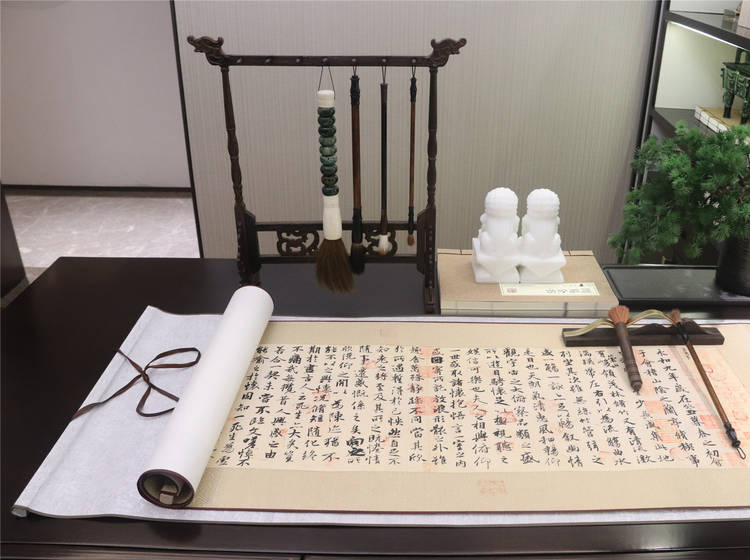 永和九年歲在癸丑暮春之初會
于會稽山陰之蘭亭脩稧事
畢至少長咸集此地
領茂林脩竹又有清流激
湍暎帶左右引以為流觴曲水
列坐其次雖無絲竹管弦之
盛一觴一詠亦足以暢敘幽情
是日也天朗氣清惠風和暢仰
觀宇宙之大俯察品類之盛
所以遊目騁懷足以極視聽之
娛信可樂也夫人之相與俯仰
一世或取諸懷抱悟言一室之內
或因寄所託放浪形骸之外雖
趣舍萬殊靜躁不同當其欣
於所遇蹔得於己怏然自足不
知老之將至及其所之既惓情
隨事遷感慨係之矣向之所
欣俛仰之間以為陳迹猶不
能不以之興懷況脩短隨化終
期於盡古人云死生亦大矣豈
不痛哉每攬昔人興感之由
若合一契未嘗不臨文嗟悼不
能喻之於懷固知一死生為虛